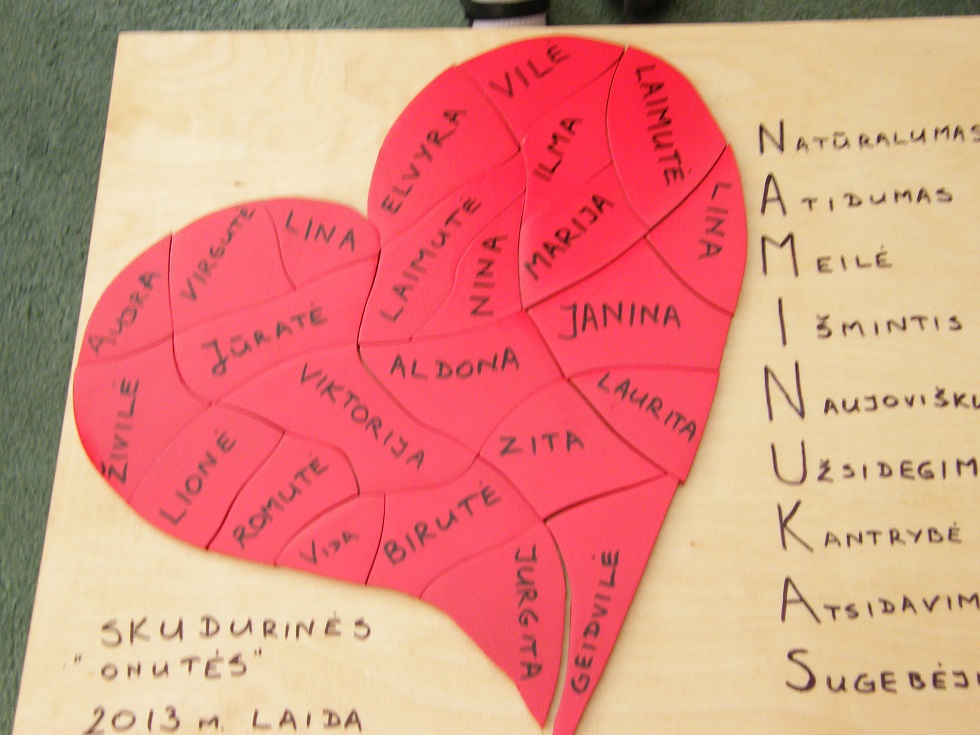 VILĖ
LAIMUTĖ
ELVYRA
ILMA
LINA
MARIJA
LAIMUTĖ
NINA
VIRGUTĖ
LINA
AUDRA
JŪRATĖ
JANINA
ALDONA
VIKTORIJA
LAURITA
ŽIVILĖ
ZITA
LIONĖ
ROMUTĖ
VIDA
BIRUTĖ
JURGITA
GEIDVILĖ
SKUDURINĖS
"ONUTĖS"
2013 m. LAIDA
NATŪRALUMAS
ATIDUMAS
MEILĖ
IŠMINTIS
NAUJOVIŠKU
UŽSIDEGIM
KANTRYBĖ
ATSIDAVIM
SUGEBĖJI